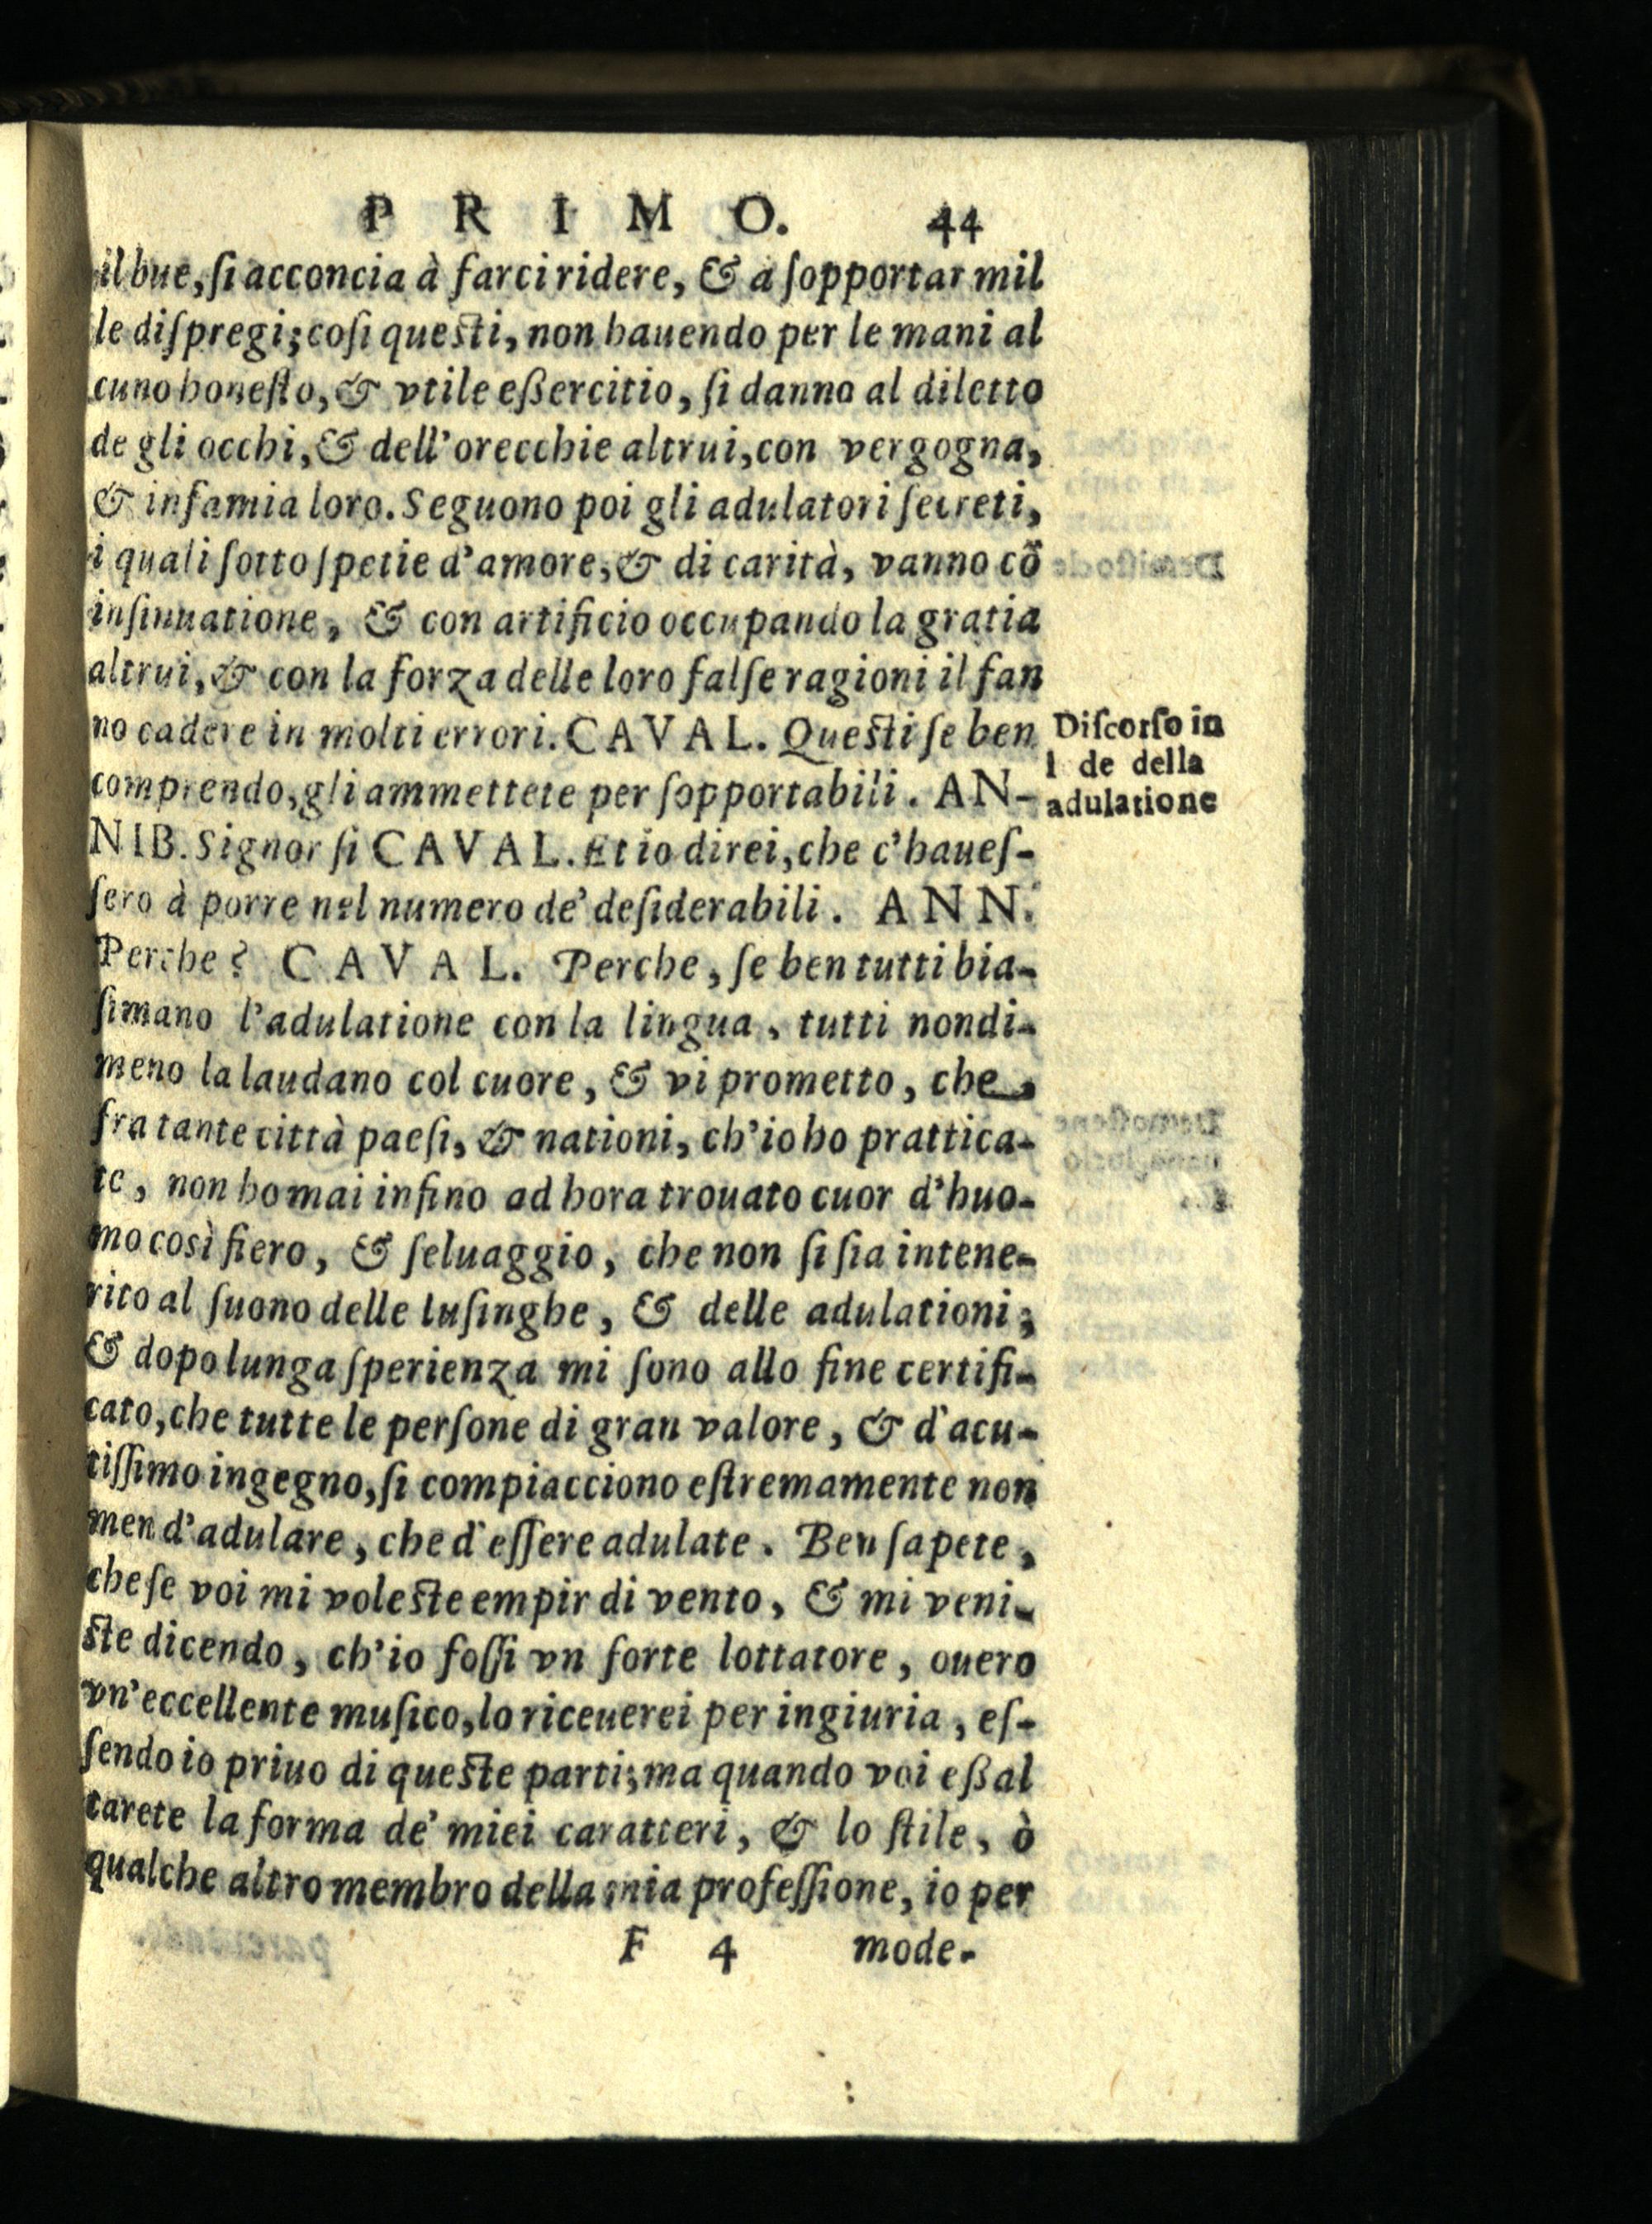 PRIMO. 44
il bue, ſi acconcia à farci ridere, & a ſopportar mil
le diſpregi; coſi queſti, non hauendo per le mani al
cuno honeſto, & vtile eßercitio, ſi danno al diletto
de gli occhi, & dell'orecchie altrui, con vergogna,
& infamia loro. Seguono poi gli adulatori ſecreti,
i quali ſotto ſpetie d'amore, & di carità, vanno cõ
inſinuatione, & con artificio occupando la gratia
altrui, & con la forza delle loro falſe ragioni il fan
no cadere in molti errori. CAVAL. Queſti ſe ben
comprendo, gli ammettete per ſopportabili. AN-
NIB. Signor ſi CAVAL. Et io direi, che c'haueſ-
ſero à porre nel numero de' deſiderabili. ANN.
Perche? CAVAL. Perche, ſe ben tutti bia-
ſimano l'adulatione con la lingua, tutti nondi-
meno la laudano col cuore, & vi prometto, che,
fra tante città paeſi, & nationi, ch'io ho prattica-
te, non ho mai infino ad hora trouato cuor d'huo-
mo così fiero, & ſeluaggio, che non ſi ſia intene-
rito al ſuono delle luſinghe, & delle adulationi;
& dopo lunga ſperienza mi ſono allo fine certifi-
cato, che tutte le perſone di gran valore, & d'acu-
tiſſimo ingegno, ſi compiacciono eſtremamente non
men d'adulare, che d'eſſere adulate. Ben ſapete,
che ſe voi mi voleſte empir di vento, & mi veni-
ſte dicendo, ch'io foſſi vn forte lottatore, ouero
vn'eccellente muſico, lo riceuerei per ingiuria, eſ-
ſendo io priuo di queſte parti; ma quando voi eßal
tarete la forma de' miei caratteri, & lo ſtile, ò
qualche altro membro della mia profeſſione, io per
F 4 mode-
Diſcorſo in
l de della
adulatione